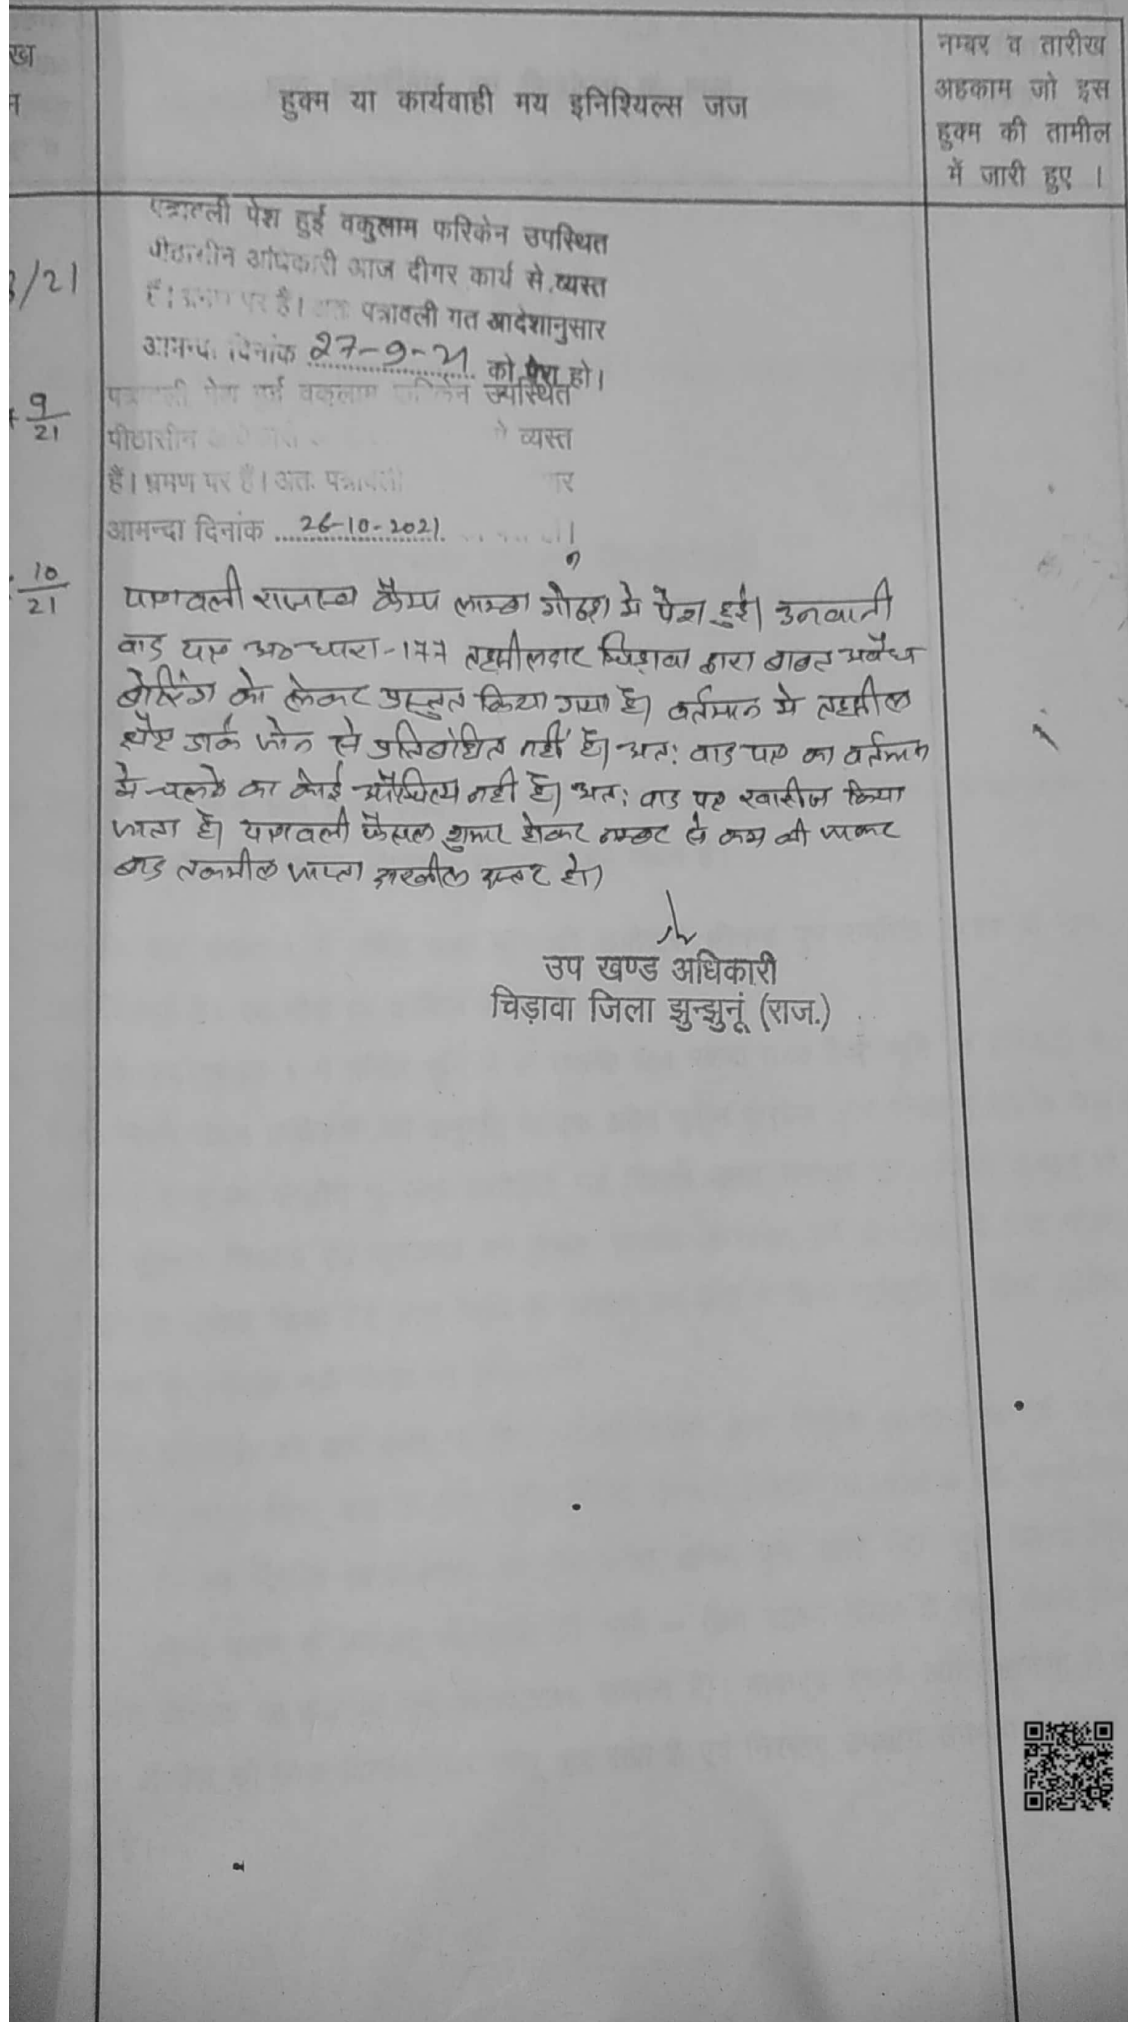 ख
हुक्म या कार्यवाही मय इनिशियल्स जज
नम्बर व तारीख
अहकाम जो इस
हुक्म की तामील
में जारी हुए ।
पत्रावली पेश हुई वकुलाम फरिकेन उपस्थित
पीठासीन अधिकारी आज दीगर कार्य से व्यस्त
हैं। भ्रमण पर है। अतः पत्रावली गत आदेशानुसार
आमन्दा दिनांक 27-9-21 को पेश हो।
/21
पत्रावली पेश हुई वकुलाम फरिकेन उपस्थित
9/21
पीठासीन व्यस्त
हैं। भ्रमण पर हैं। अतः पत्रावली
आमन्दा दिनांक 26-10-2021
10/21
पत्रावली राजस्व कैम्प लाम्बा गोठडा मे पेश हुई। उनवानी
वाद पत्र अ० धारा-177 तहसीलदार चिडावा द्वारा बाबत अवैध
बोरिंग को लेकर प्रस्तुत किया गया है। वर्तमान मे तहसील
क्षेत्र डार्क जोन से प्रतिबंधित नहीं है। अतः वाद पत्र का वर्तमान
मे चलने का कोई औचित्य नही है। अतः वाद पत्र खारीज किया
जाता है। पत्रावली फैसल शुमार होकर नम्बर से कम की जाकर
बाद तकमील जाप्ता दाखील दफ्तर हो।
उप खण्ड अधिकारी
चिड़ावा जिला झुन्झुनूं (राज.)